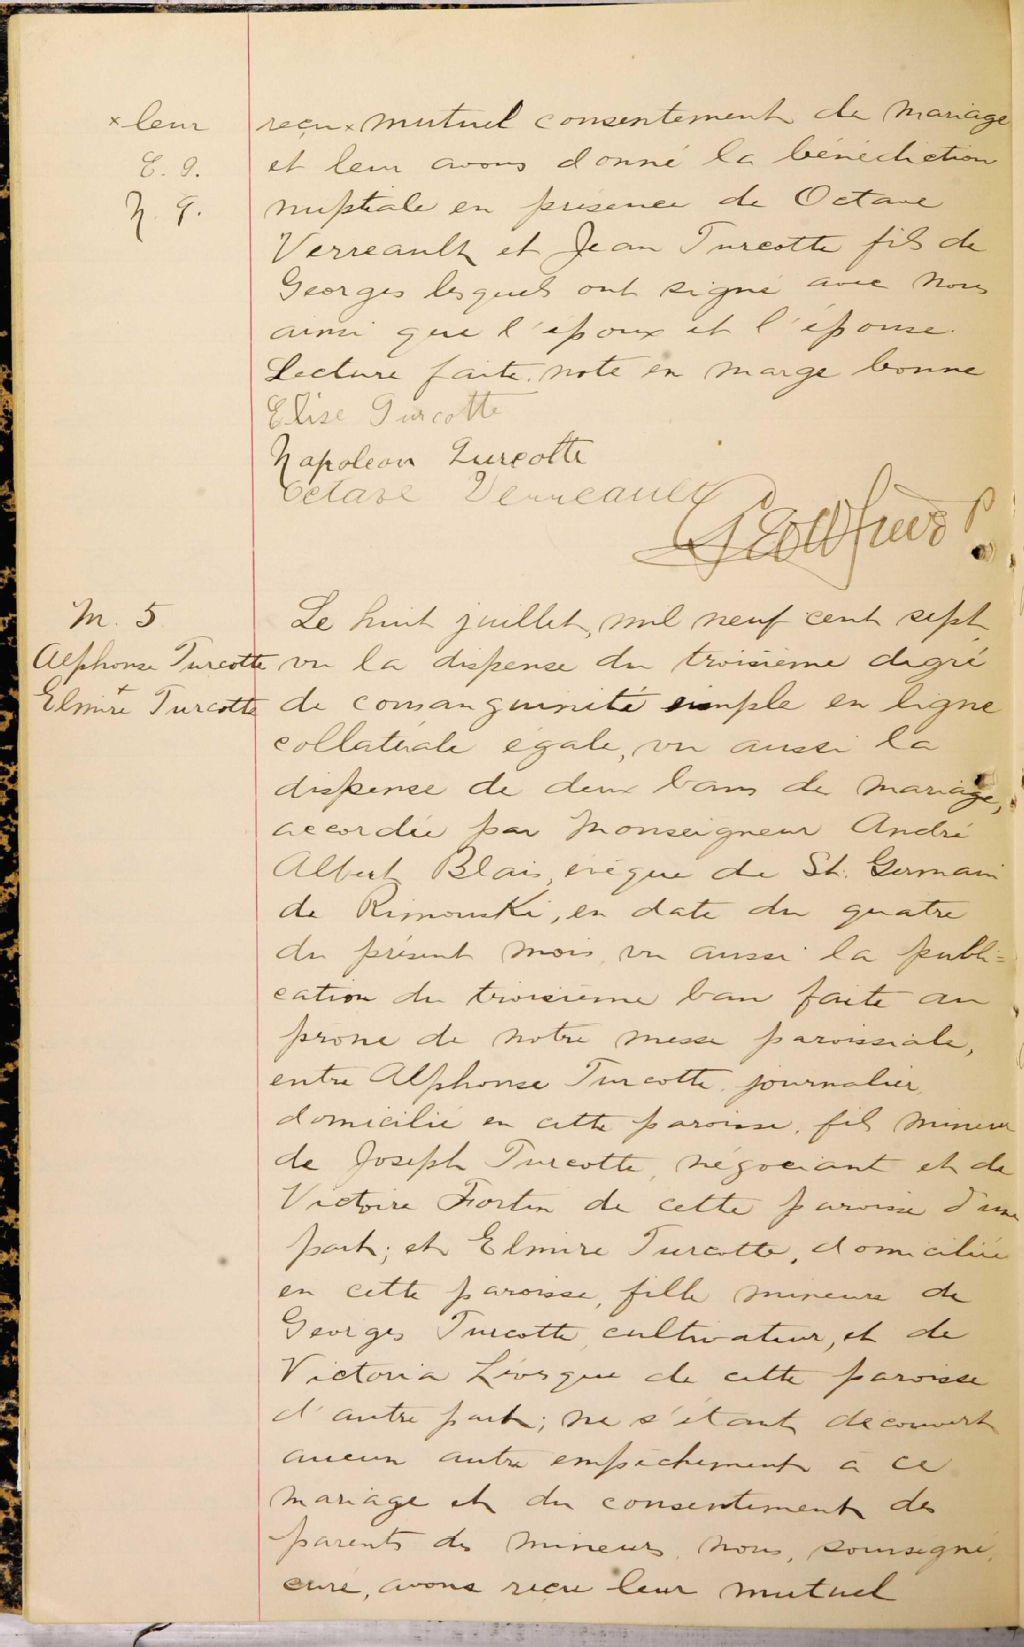 × leur
E. T.
N. T.
reçu × mutuel consentement de mariage
et leur avons donné la bénédiction
nuptiale en présence de Octave
Verreault et Jean Turcotte fils de
Georges lesquels ont signé avec nous
ainsi que l'époux et l'épouse.
Lecture faite. note en marge bonne
Elise Turcotte
Napoleon Turcotte
Octave Verreault
M. 5
Alphonse Turcotte
+
Elmire Turcotte
Le huit juillet, mil neuf cent sept
vu la dispense du troisième degré
de consanguinité simple en ligne
collatérale égale, vu aussi la
dispense de deux bans de mariage,
accordée par Monseigneur André
Albert Blais, évêque de St. Germain
de Rimouski, en date du quatre
du présent mois, vu aussi la publi=
cation du troisième ban faite au
prone de notre messe paroissiale,
entre Alphonse Turcotte, journalier,
domicilié en cette paroisse, fils mineur
de Joseph Turcotte, négociant et de
Victoire Fortin de cette paroisse d'une
part; et Elmire Turcotte, domiciliée
en cette paroisse, fille mineure de
Georges Turcotte, cultivateur, et de
Victoria Lévesque de cette paroisse
d'autre part; ne s'étant découvert
aucun autre empêchement à ce
mariage et du consentement des
parents des mineurs, nous, soussigné,
curé, avons reçu leur mutuel